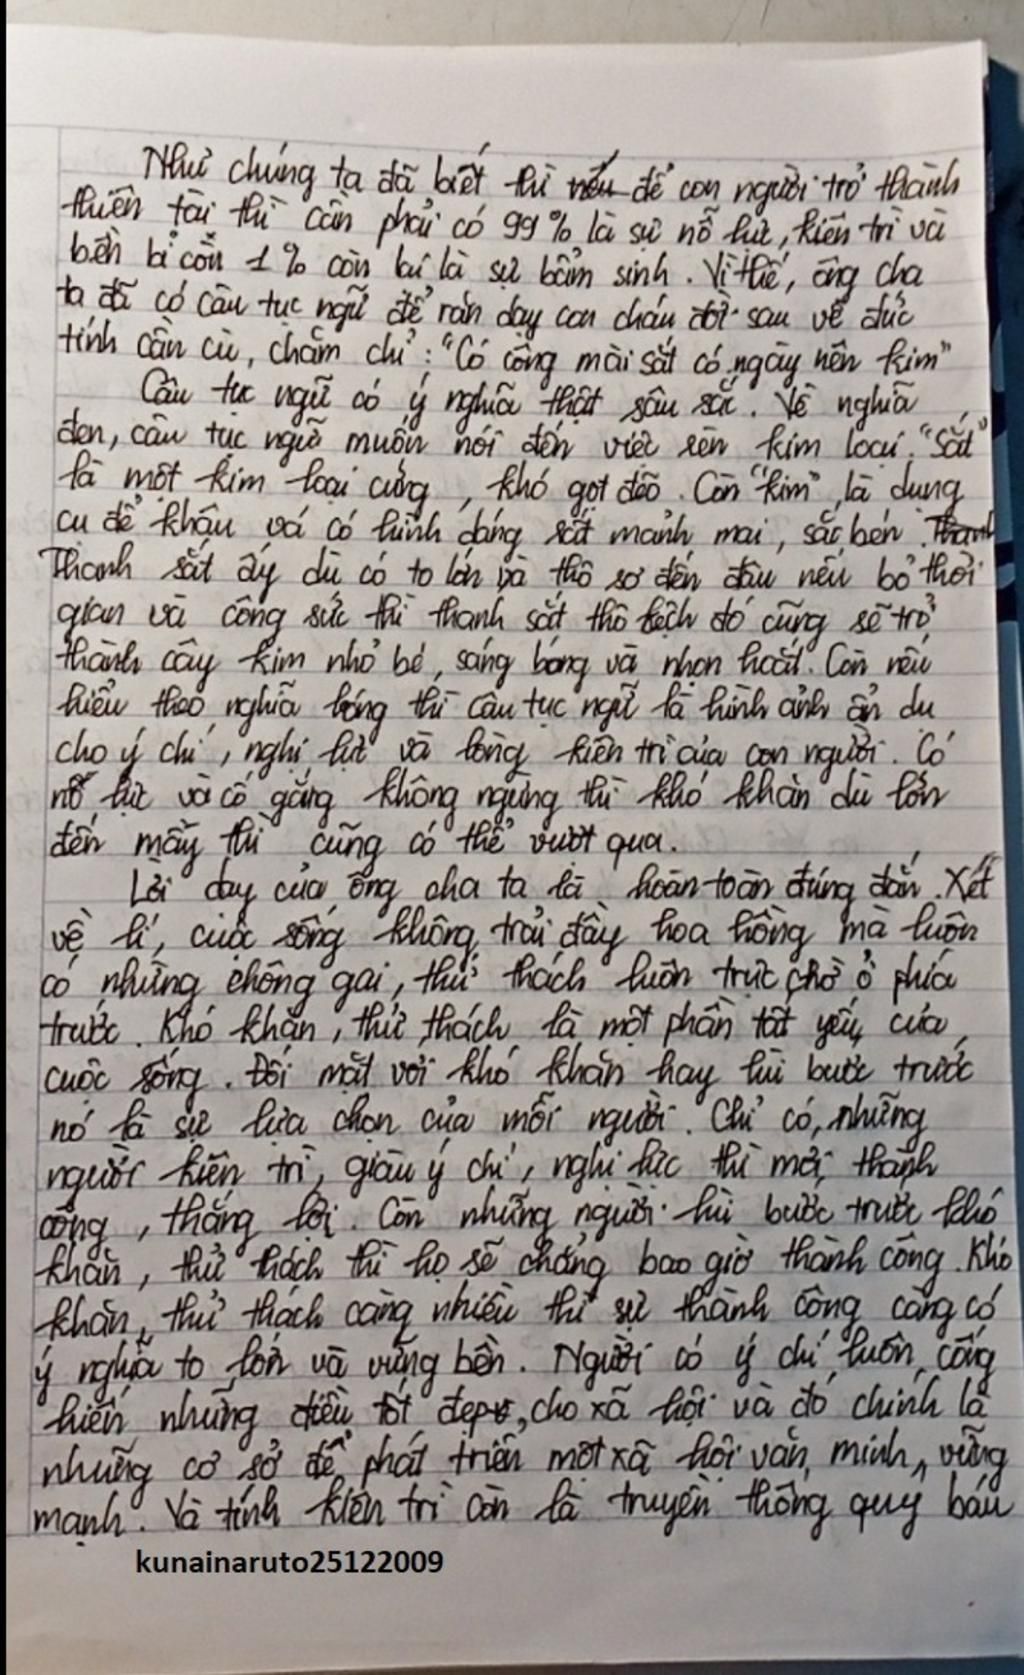 Như chúng ta đã biết thì nếu để con người trở thành
thiên tài thì cần phải có 99% là sự nỗ lực, kiên trì và
bền bỉ còn 1% còn lại là sự bẩm sinh. Vì thế, ông cha
ta đã có câu tục ngữ để răn dạy con cháu đời sau về đức
tính cần cù, chăm chỉ: "Có công mài sắt có ngày nên kim"
Câu tục ngữ có ý nghĩa thật sâu sắc. Về nghĩa
đen, câu tục ngữ muốn nói đến việc rèn kim loại. "Sắt"
là một kim loại cứng, khó gọt đẽo. Còn "kim" là dụng
cụ để khâu vá có hình dáng rất mảnh mai, sắc bén. Thanh
Thanh sắt ấy dù có to lớn và thô sơ đến đâu nếu bỏ thời
gian và công sức thì thanh sắt thô kệch đó cũng sẽ trở
thành cây kim nhỏ bé, sáng bóng và nhọn hoắt. Còn nếu
hiểu theo nghĩa bóng thì câu tục ngữ là hình ảnh ẩn dụ
cho ý chí, nghị lực và lòng kiên trì của con người. Có
nỗ lực và cố gắng không ngừng thì khó khăn dù lớn
đến mấy thì cũng có thể vượt qua.
Lời dạy của ông cha ta là hoàn toàn đúng đắn. Xét
về lí, cuộc sống không trải đầy hoa hồng mà luôn
có những chông gai, thử thách luôn trực chờ ở phía
trước. Khó khăn, thử thách là một phần tất yếu của
cuộc sống. Đối mặt với khó khăn hay lùi bước trước
nó là sự lựa chọn của mỗi người. Chỉ có những
người kiên trì, giàu ý chí, nghị lực thì mới thành
công, thắng lợi. Còn những người lùi bước trước khó
khăn, thử thách thì họ sẽ chẳng bao giờ thành công. Khó
khăn, thử thách càng nhiều thì sự thành công càng có
ý nghĩa to lớn và vững bền. Người có ý chí luôn cống
hiến những điều tốt đẹp cho xã hội và đó chính là
những cơ sở để phát triển một xã hội văn minh, vững
mạnh. Và tính kiên trì còn là truyền thống quý báu
kunainaruto25122009